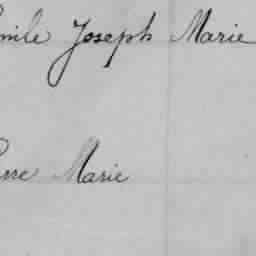 Emile Joseph Marie
Pierre Marie